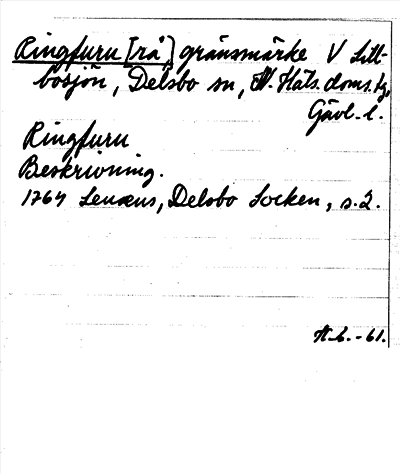 Ringfuru [rå] gränsmärke V Lill-
bosjön, Delsbo sn, N. Häls. doms.hg,
Gävl. l.
Ringfuru
Beskrivning.
1764 Lenæus, Delsbo Socken, s. 2.
H.b. -61.